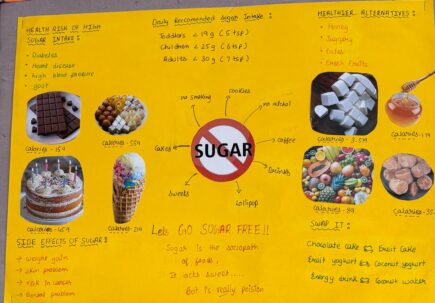 HEALTH RISK OF HIGH
SUGAR INTAKE :
• Diabetes
• Heart disease
• high blood pressure
• gout
Daily Recommended Sugar Intake :
Toddlers < 19 g (5 tsp)
Children < 25 g (6 tsp)
Adults < 30 g (7 tsp)
HEALTHIER ALTERNATIVES :
• Honey
• Dates
• Fresh Fruits
calories - 159
calories - 559
no smoking
cookies
no alcohol
Cakes
SUGAR
coffee
Sweets
Lollipop
Donuts
calories - 459
calories - 219
calories - 89
SIDE EFFECTS OF SUGAR :
→ weight gain
→ skin problem
→ risk in cancer
→ Dental problem
Lets GO SUGAR FREE!!
Sugar is the sociopath
of foods.
It acts sweet ....
But is really poision
SWAP IT :
Chocolate cake Fruit Cake
Fruit yoghurt Coconut yoghurt
Energy drink Coconut water